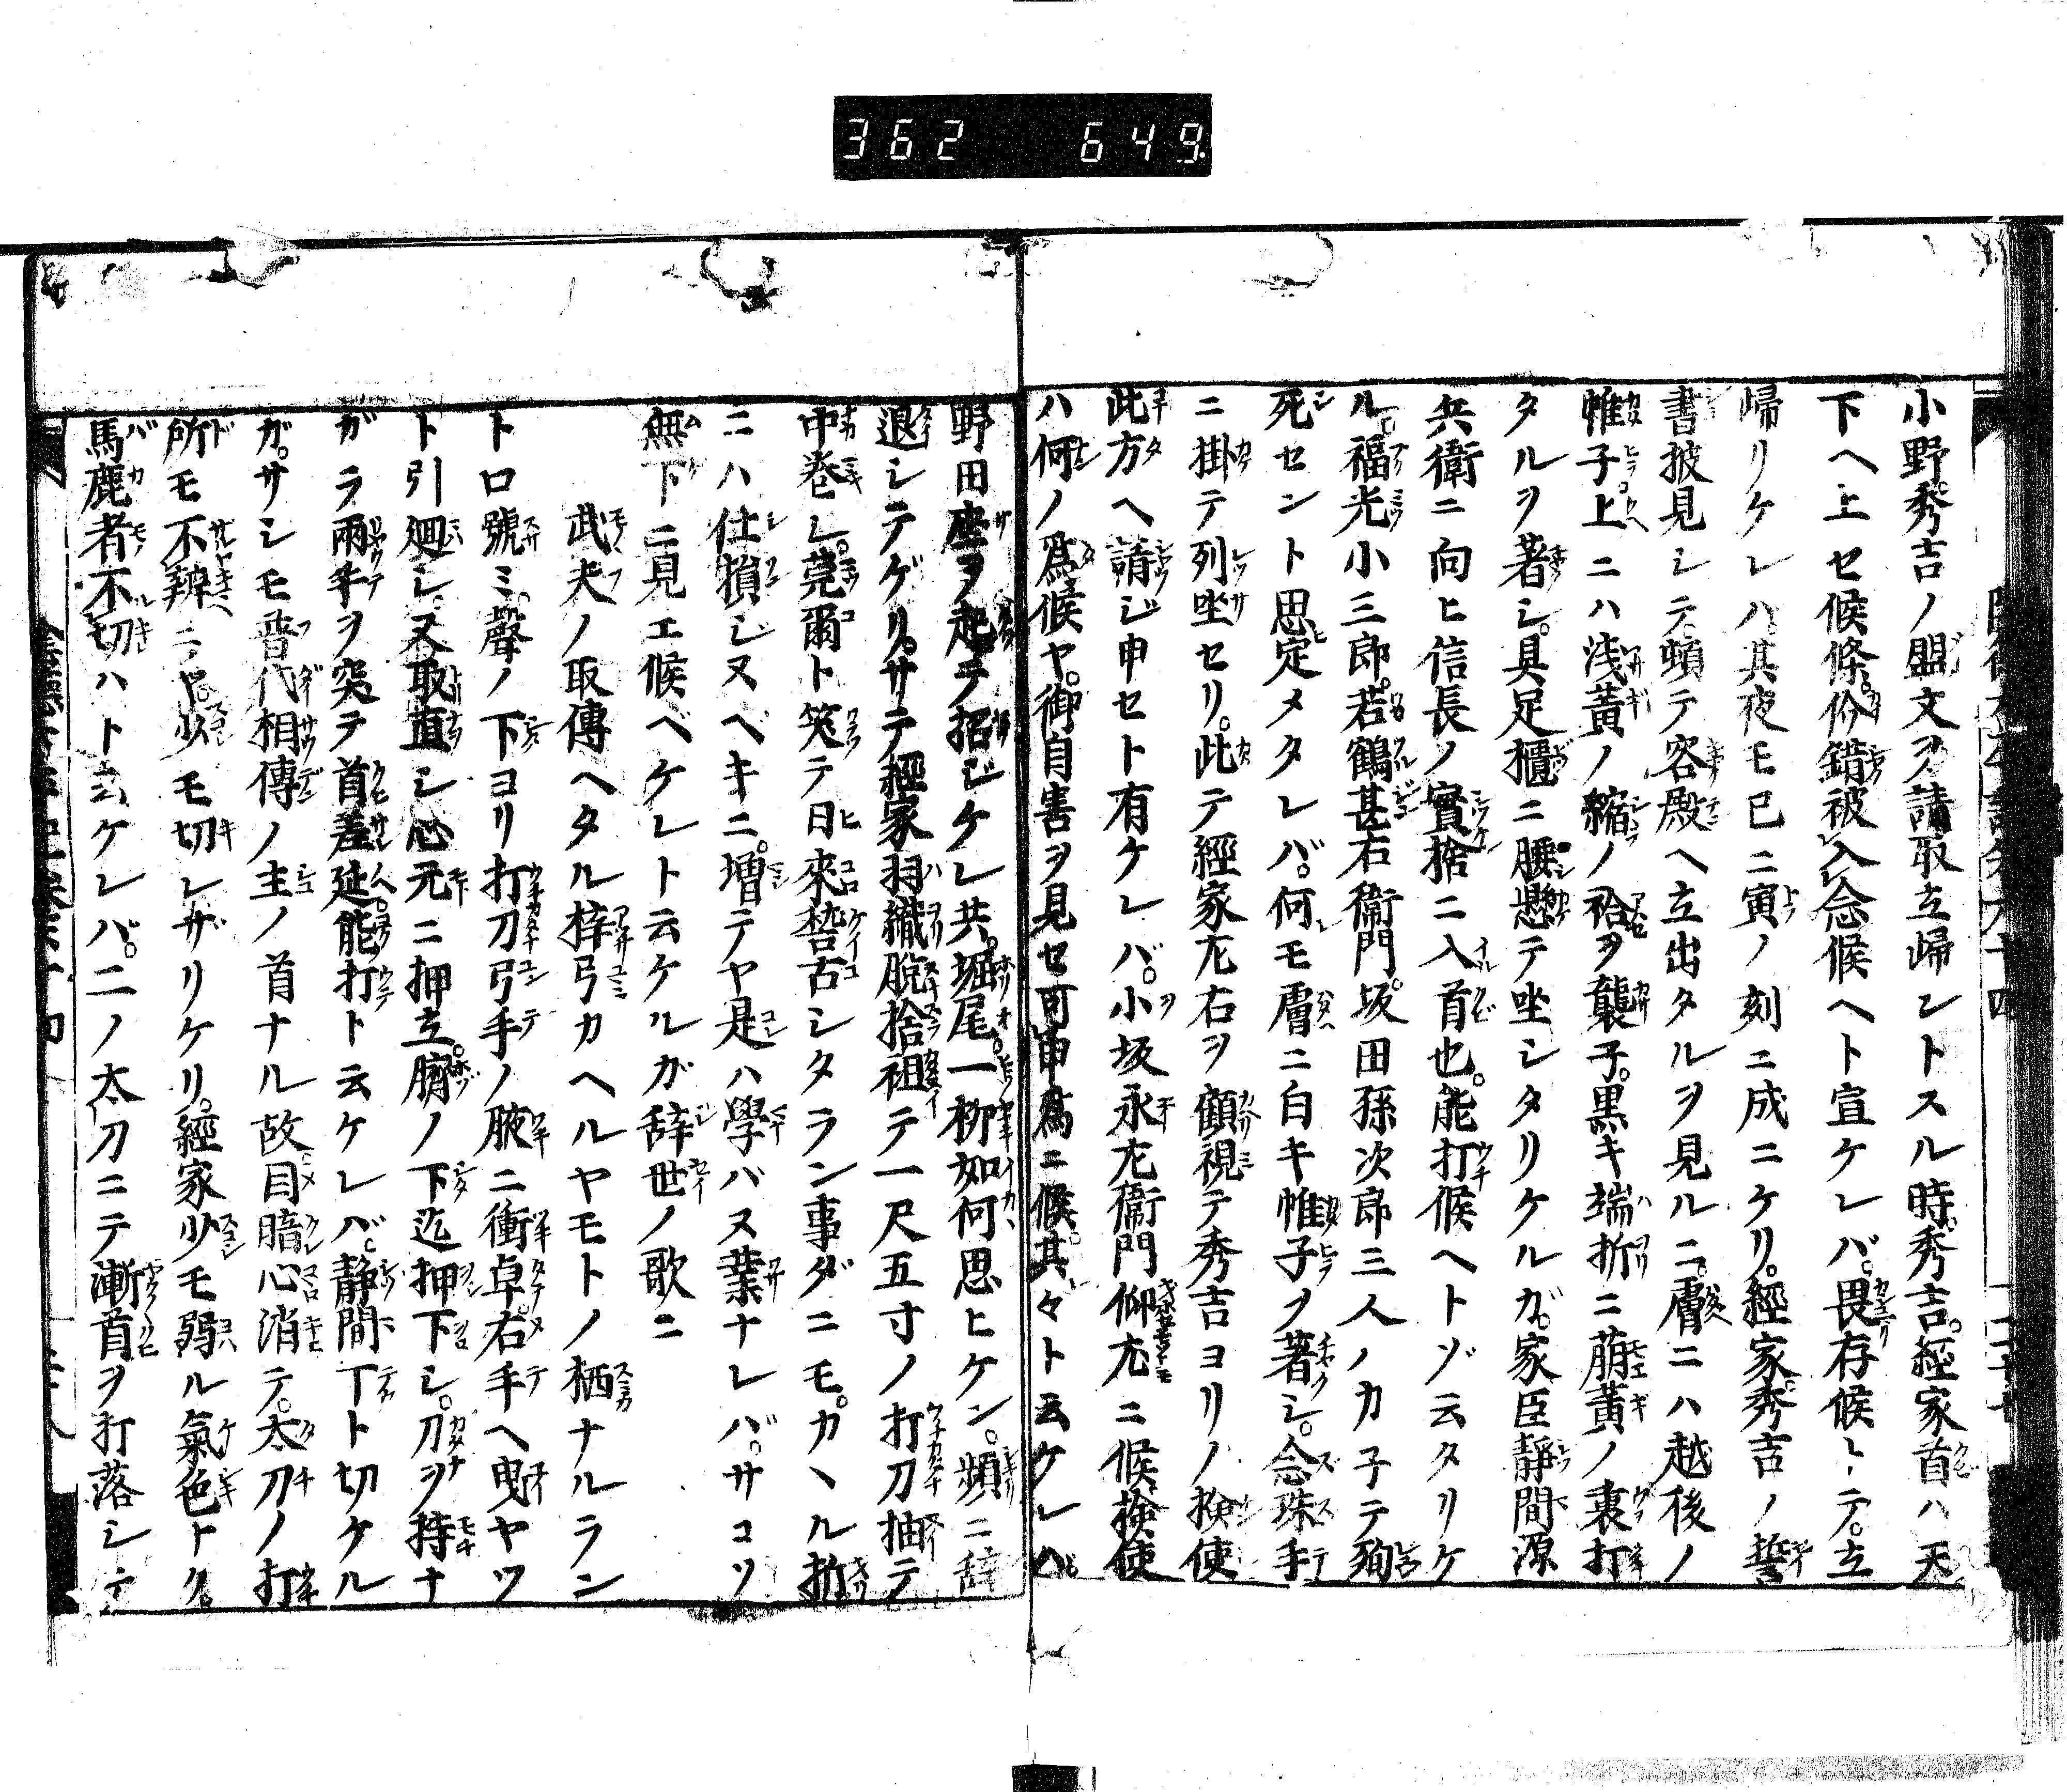 362 649
小野秀吉ノ盟文ヲ請取立歸ントスル時。秀吉。經家首ハ天
下ヘ上セ候條。伱錯被入念候ヘト宣ケレバ。畏存候トテ。立
歸リケレハ其夜モ已ニ寅ノ刻ニ成ニケリ。經家秀吉ノ誓
書披見シテ頓テ容殿ヘ立出タルヲ見ルニ。膚ニハ越後ノ
帷子。上ニハ浅黄ノ縮ノ袷ヲ襲子。黒キ端折ニ萠黄ノ裏打
タルヲ著シ。具足櫃ニ腰懸テ坐シタリケルガ。家臣靜間源
兵衛ニ向ヒ信長ノ實捡ニ入首也。能打候ヘトゾ云タリケ
ル。福光小三郎。若鶴甚右衛門。坂田孫次郎三人ノカ子テ殉
死セント思定メタレバ。何モ膚ニ白キ帷子ヲ著シ。念珠手
ニ掛テ列坐セリ。此テ經家左右ヲ顧視テ秀吉ヨリノ捡使
此方ヘ請ジ申セト有ケレバ。小坂永左衛門仰尤ニ候。捡使
ハ何ノ爲候ヤ。御自害ヲ見セ可申爲ニ候。其々ト云ケレハ
野田座ヲ起テ招ジケレ共。堀尾。一柳如何思ヒケン。頻ニ辞
退シテゲリ。サテ經家羽織脱捨袒テ一尺五寸ノ打刀抽テ
中巻シ。莞爾ト笑テ日來嵆古シタラン事ダニモ。カヽル折
ニハ仕損ジヌベキニ。増テヤ是ハ學バヌ業ナレバ。サコソ
無下ニ見エ候ベケレト云ケルガ辞世ノ歌ニ
武夫ノ取傳ヘタル梓弓カヘルヤモトノ栖ナルラン
ト口號ミ。聲ノ下ヨリ打刀弓手ノ腋ニ衝卓。右手ヘ曳ヤツ
ト引廻シ。又取直シ心元ニ押立。臍ノ下迄押下シ。刀ヲ持ナ
ガラ兩手ヲ突テ首差延。能打ト云ケレバ。靜間丁ト切ケル
ガ。サシモ晋代相傳ノ主ノ首ナル故目暗心消テ。太刀ノ打
所モ不辨ニヤ少モ切レザリケリ。經家少モ弱ル氣色トク。
馬鹿者不切ハト云ケレバ。二ノ太刀ニテ漸首ヲ打落シテ